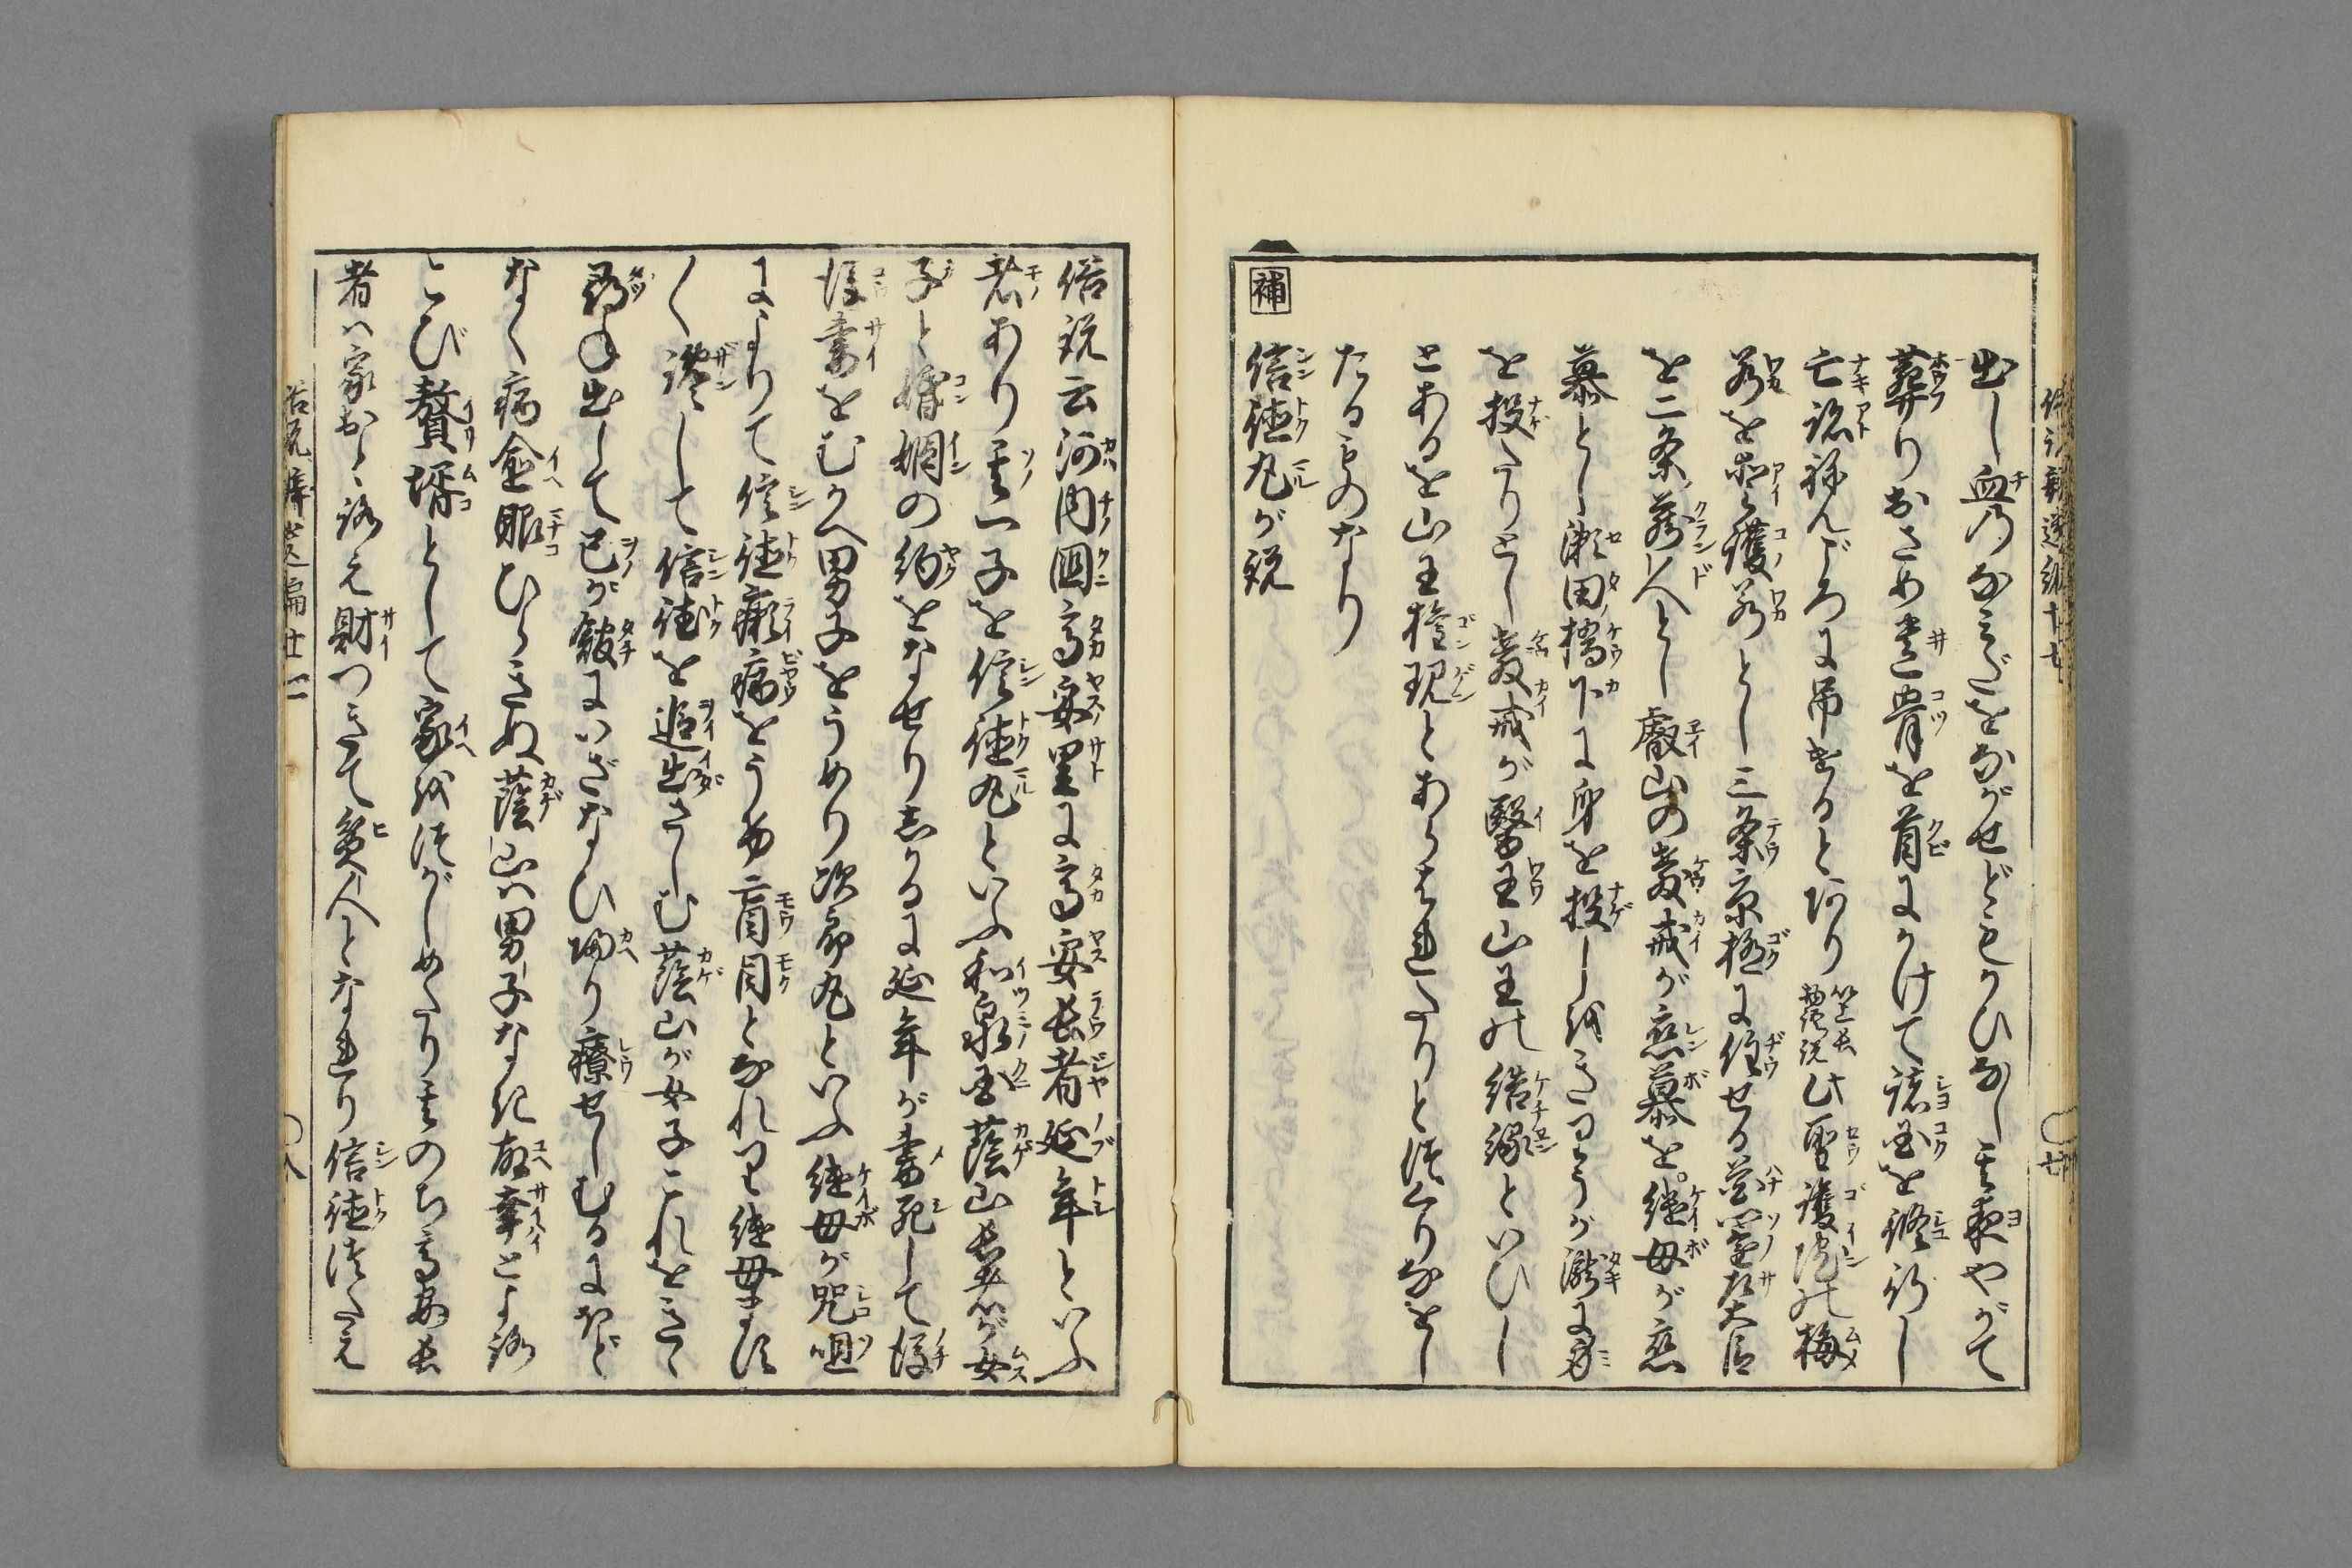 出し血のなみだをながせどもかひなし其夜やがて
葬りおさめ遺骨を首にかけて諸国を修行し
亡跡ねんごろに吊けるとあり 此聖護院の梅
若を愛護若とし三条京極に住せる花園左大臣
を二条蔵人とし叡山の教戒が恋慕を継母が恋
慕とし瀬田橋下に身を投しをきりうが瀧に身
を投たりとし教戒が医王山王の結縁といひし
とあるを山王権現とあらはれたりとつくりなをし
たるものなり
補
信徳丸が説
俗説云河内国高安里に高安長者延年といふ
者あり其一子を信徳丸といふ和泉国蔭山長者が女
子と婚姻の約をなせりしかるに延年が妻死して後
後妻をむかへ男子をうめり次郎丸といふ継母が咒咀
によりて信徳癩病をうけ盲目となれり継母ます
〱讒して信徳を追出さしむ蔭山が女子これをきゝ
尋ね出して己が館にいざなひ帰り療せしむるにほど
なく病愈眼ひらきぬ蔭山は男子なき故幸とよろ
こび贅壻として家をつがしめたり其のち高安長
者は家おとろえ財つきて貧人となれり信徳つたえ